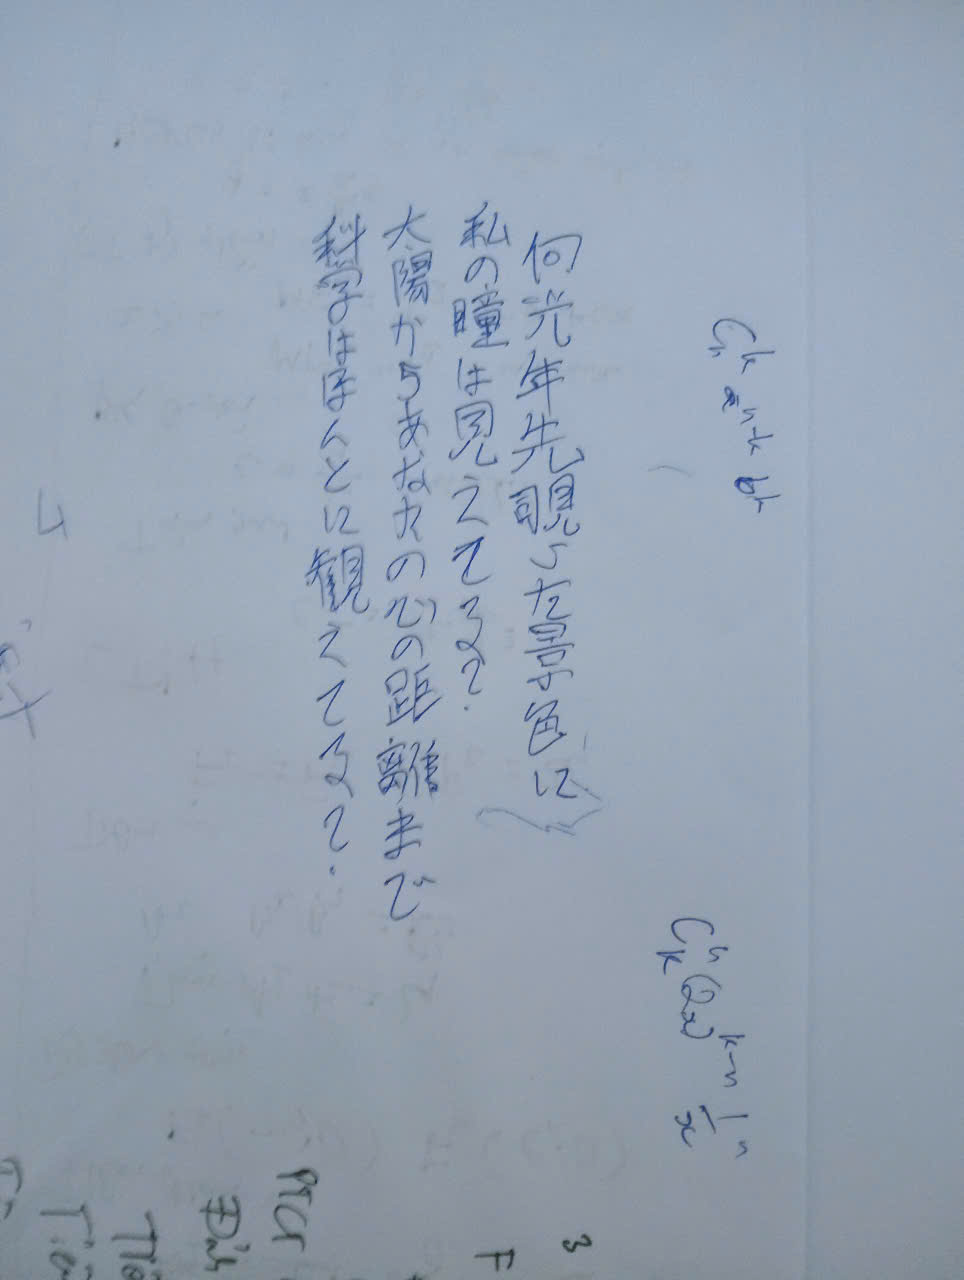 何光年先覗いた景色に
私の瞳は見えてるて.
太陽からあなたの心の距離まで
科学はほんとに観えてるて.
C_n^k a^{n-k} b^k
C_k^n (2x)^{k-n} \frac{1}{x}^n
PTCT
3
F